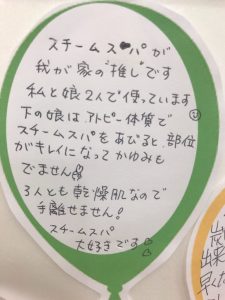 スチームスパが
我が家の"推し"です
私と娘2人で使っています
下の娘はアトピー体質で
スチームスパをあびると、部位
がキレイになってかゆみも
でません!
3人とも乾燥肌なので
手離せません!
スチームスパ
大好きです
出来
早く